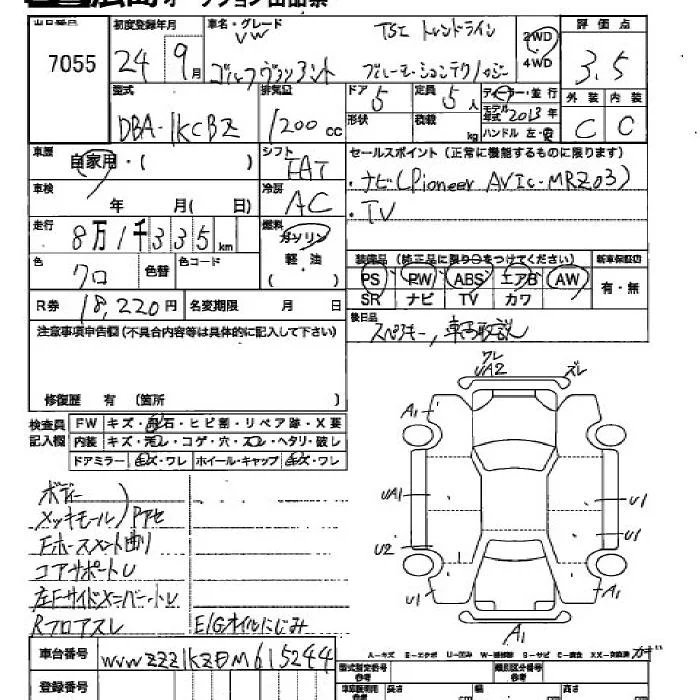 広島オークション出品票
出品番号 初度登録年月 車名・グレード 評価点
7055 24年 9月 VW TSI トレンドライン 2WD 4WD
ゴルフヴァリアント ブルーモーションテクノロジー 3.5
型式 排気量 ドア 定員 ディーラー・並行 外装 内装
DBA-1KCBZ 1200cc 5 5人 モデル年式 2013年 C C
形状 積載 kg ハンドル 左・右
車歴 自家用・( ) シフト FAT セールスポイント(正常に機能するものに限ります)
車検 年 月( 日) 冷房 AC ・ナビ(Pioneer AVIC-MRZ03)
・TV
走行 8万1千335km 燃料 ガソリン 軽油 ( )
装備品(純正品に限り○をつけてください) 新車保証書
色 クロ 色替 色コード PS PW ABS エアB AW 有・無
R券 18,220円 名変期限 月 日 SR ナビ TV カワ
注意事項申告欄(不具合内容等は具体的に記入して下さい) 後日品
スペアキー, 車両取説
修復歴 有 (箇所 )
検査員記入欄 FW キズ・飛石・ヒビ割・リペア跡・X要
内装 キズ・汚レ・コゲ・穴・スレ・ヘタリ・破レ
ドアミラー キズ・ワレ ホイール・キャップ キズ・ワレ
ワレ
UA2 ズレ
A1
UA1 U1
U1
U2
U1 A1
A1
ボディー
メッキモール
Fホースメント曲り
コアサポートU
左FサイドメンバーットU
Rフロアスレ E/Gオイルにじみ
A-キズ E-エクボ U-凹み W-補修跡 S-サビ C-腐食 XX-交換済
車台番号 WVWZZZ1KZDM615244
型式指定番号 類別区分番号
登録番号 長さ cm 幅 cm 高さ